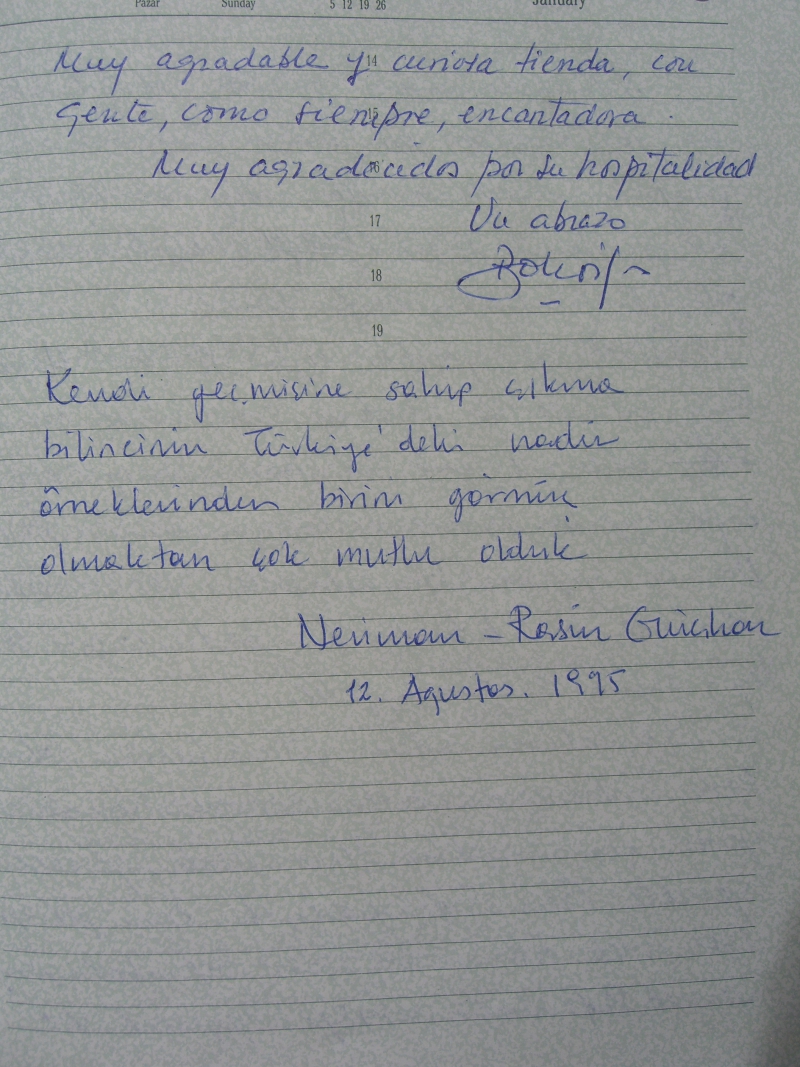 Pazar Sunday 5 12 19 26 January
Muy agradable y 14 curiosa tienda, con
Gente, como siempre, encantadora.
15
Muy agradecidos por su hospitalidad
16
17 Un abrazo
18
19
Kendi geçmişine sahip çıkma
bilincinin Türkiye'deki nadir
örneklerinden birini görmüş
olmaktan çok mutlu olduk
Neriman - Rasin
12. Agustos. 1995